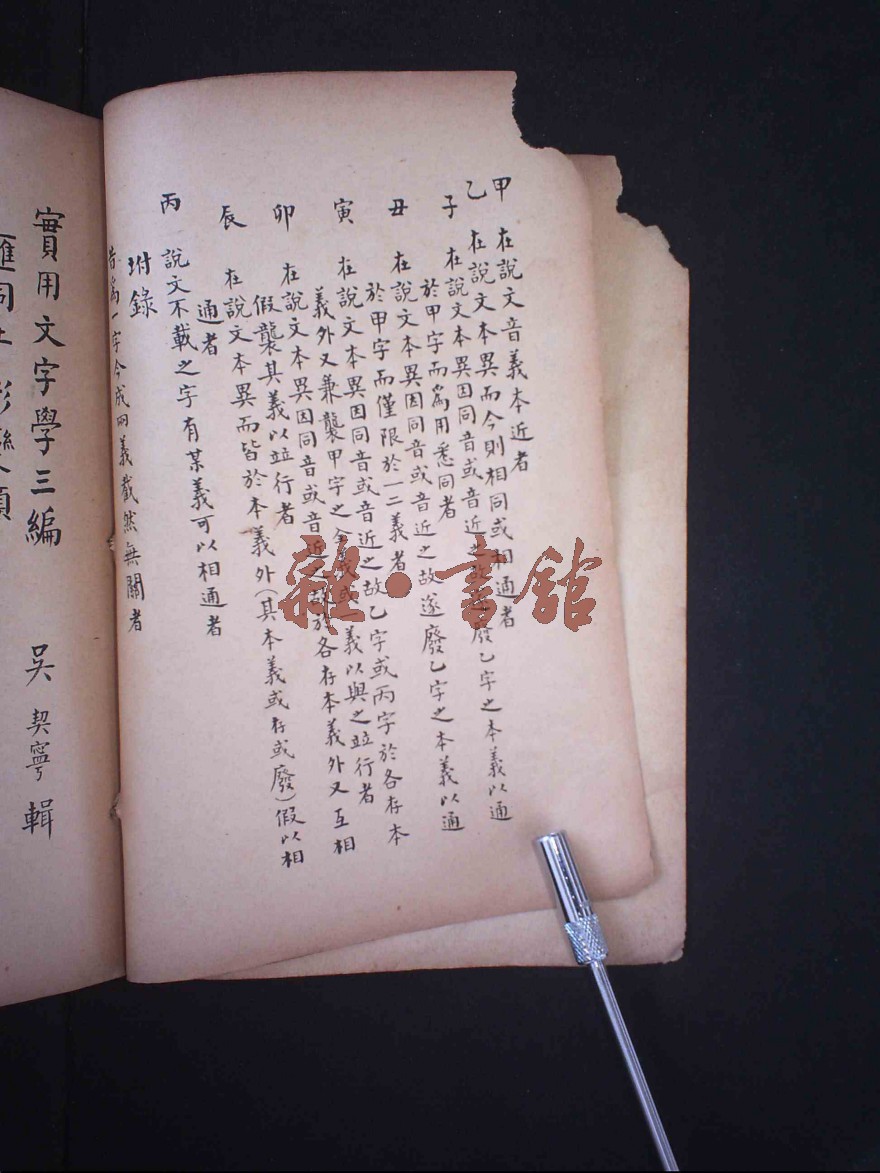 甲 在說文音義本近者
乙 在說文本異而今則相同或相通者
子 在說文本異因同音或音近之故遂廢乙字之本義以通
於甲字而爲用悉同者
丑 在說文本異因同音或音近之故遂廢乙字之本義以通
於甲字而僅限於一二義者
寅 在說文本異因同音或音近之故乙字或丙字於各存本
義外又兼襲甲字之全義或義以與之竝行者
卯 在說文本異因同音或音近之故於各存本義外又互相
假襲其義以竝行者
辰 在說文本異而皆於本義外(其本義或存或廢)假以相
通者
丙 說文不載之字有某義可以相通者
坿錄
昔爲一字今成兩義截然無關者
實用文字學三編 吳契寧輯
雜·書館